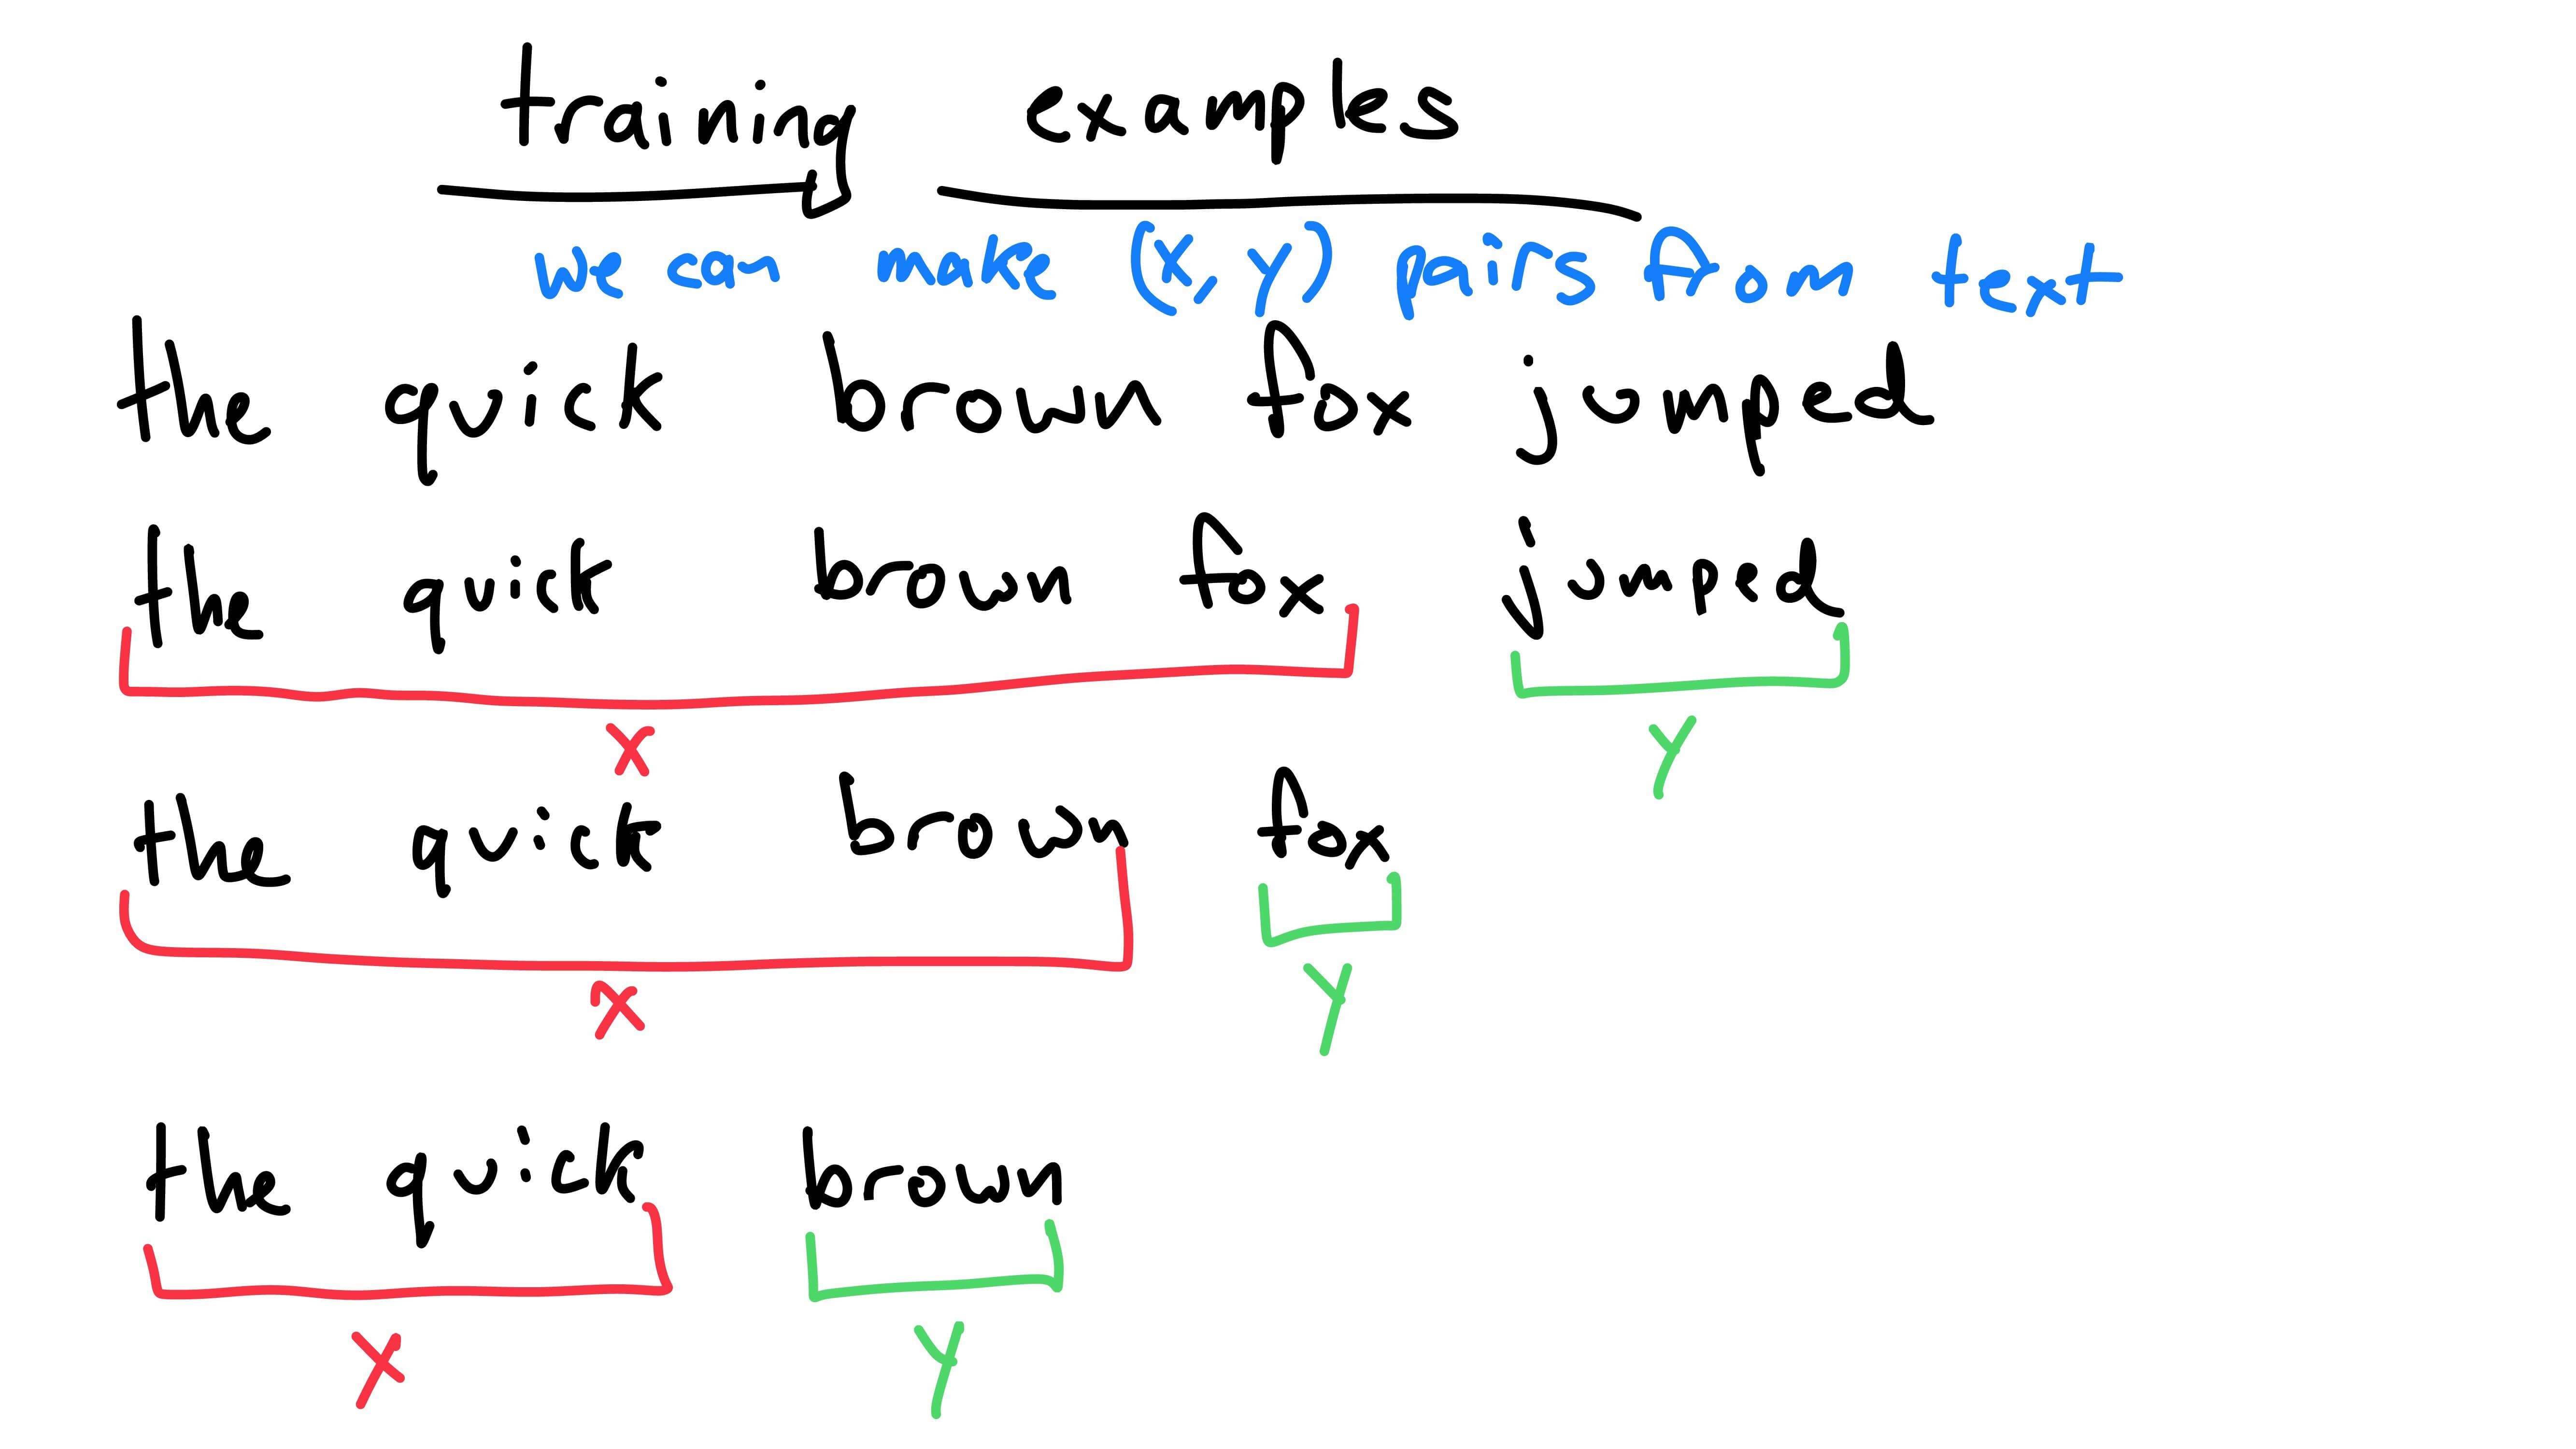 training examples
we can make (X, Y) pairs from text
the quick brown fox jumped
the quick brown fox jumped
X Y
the quick brown fox
X Y
the quick brown
X Y